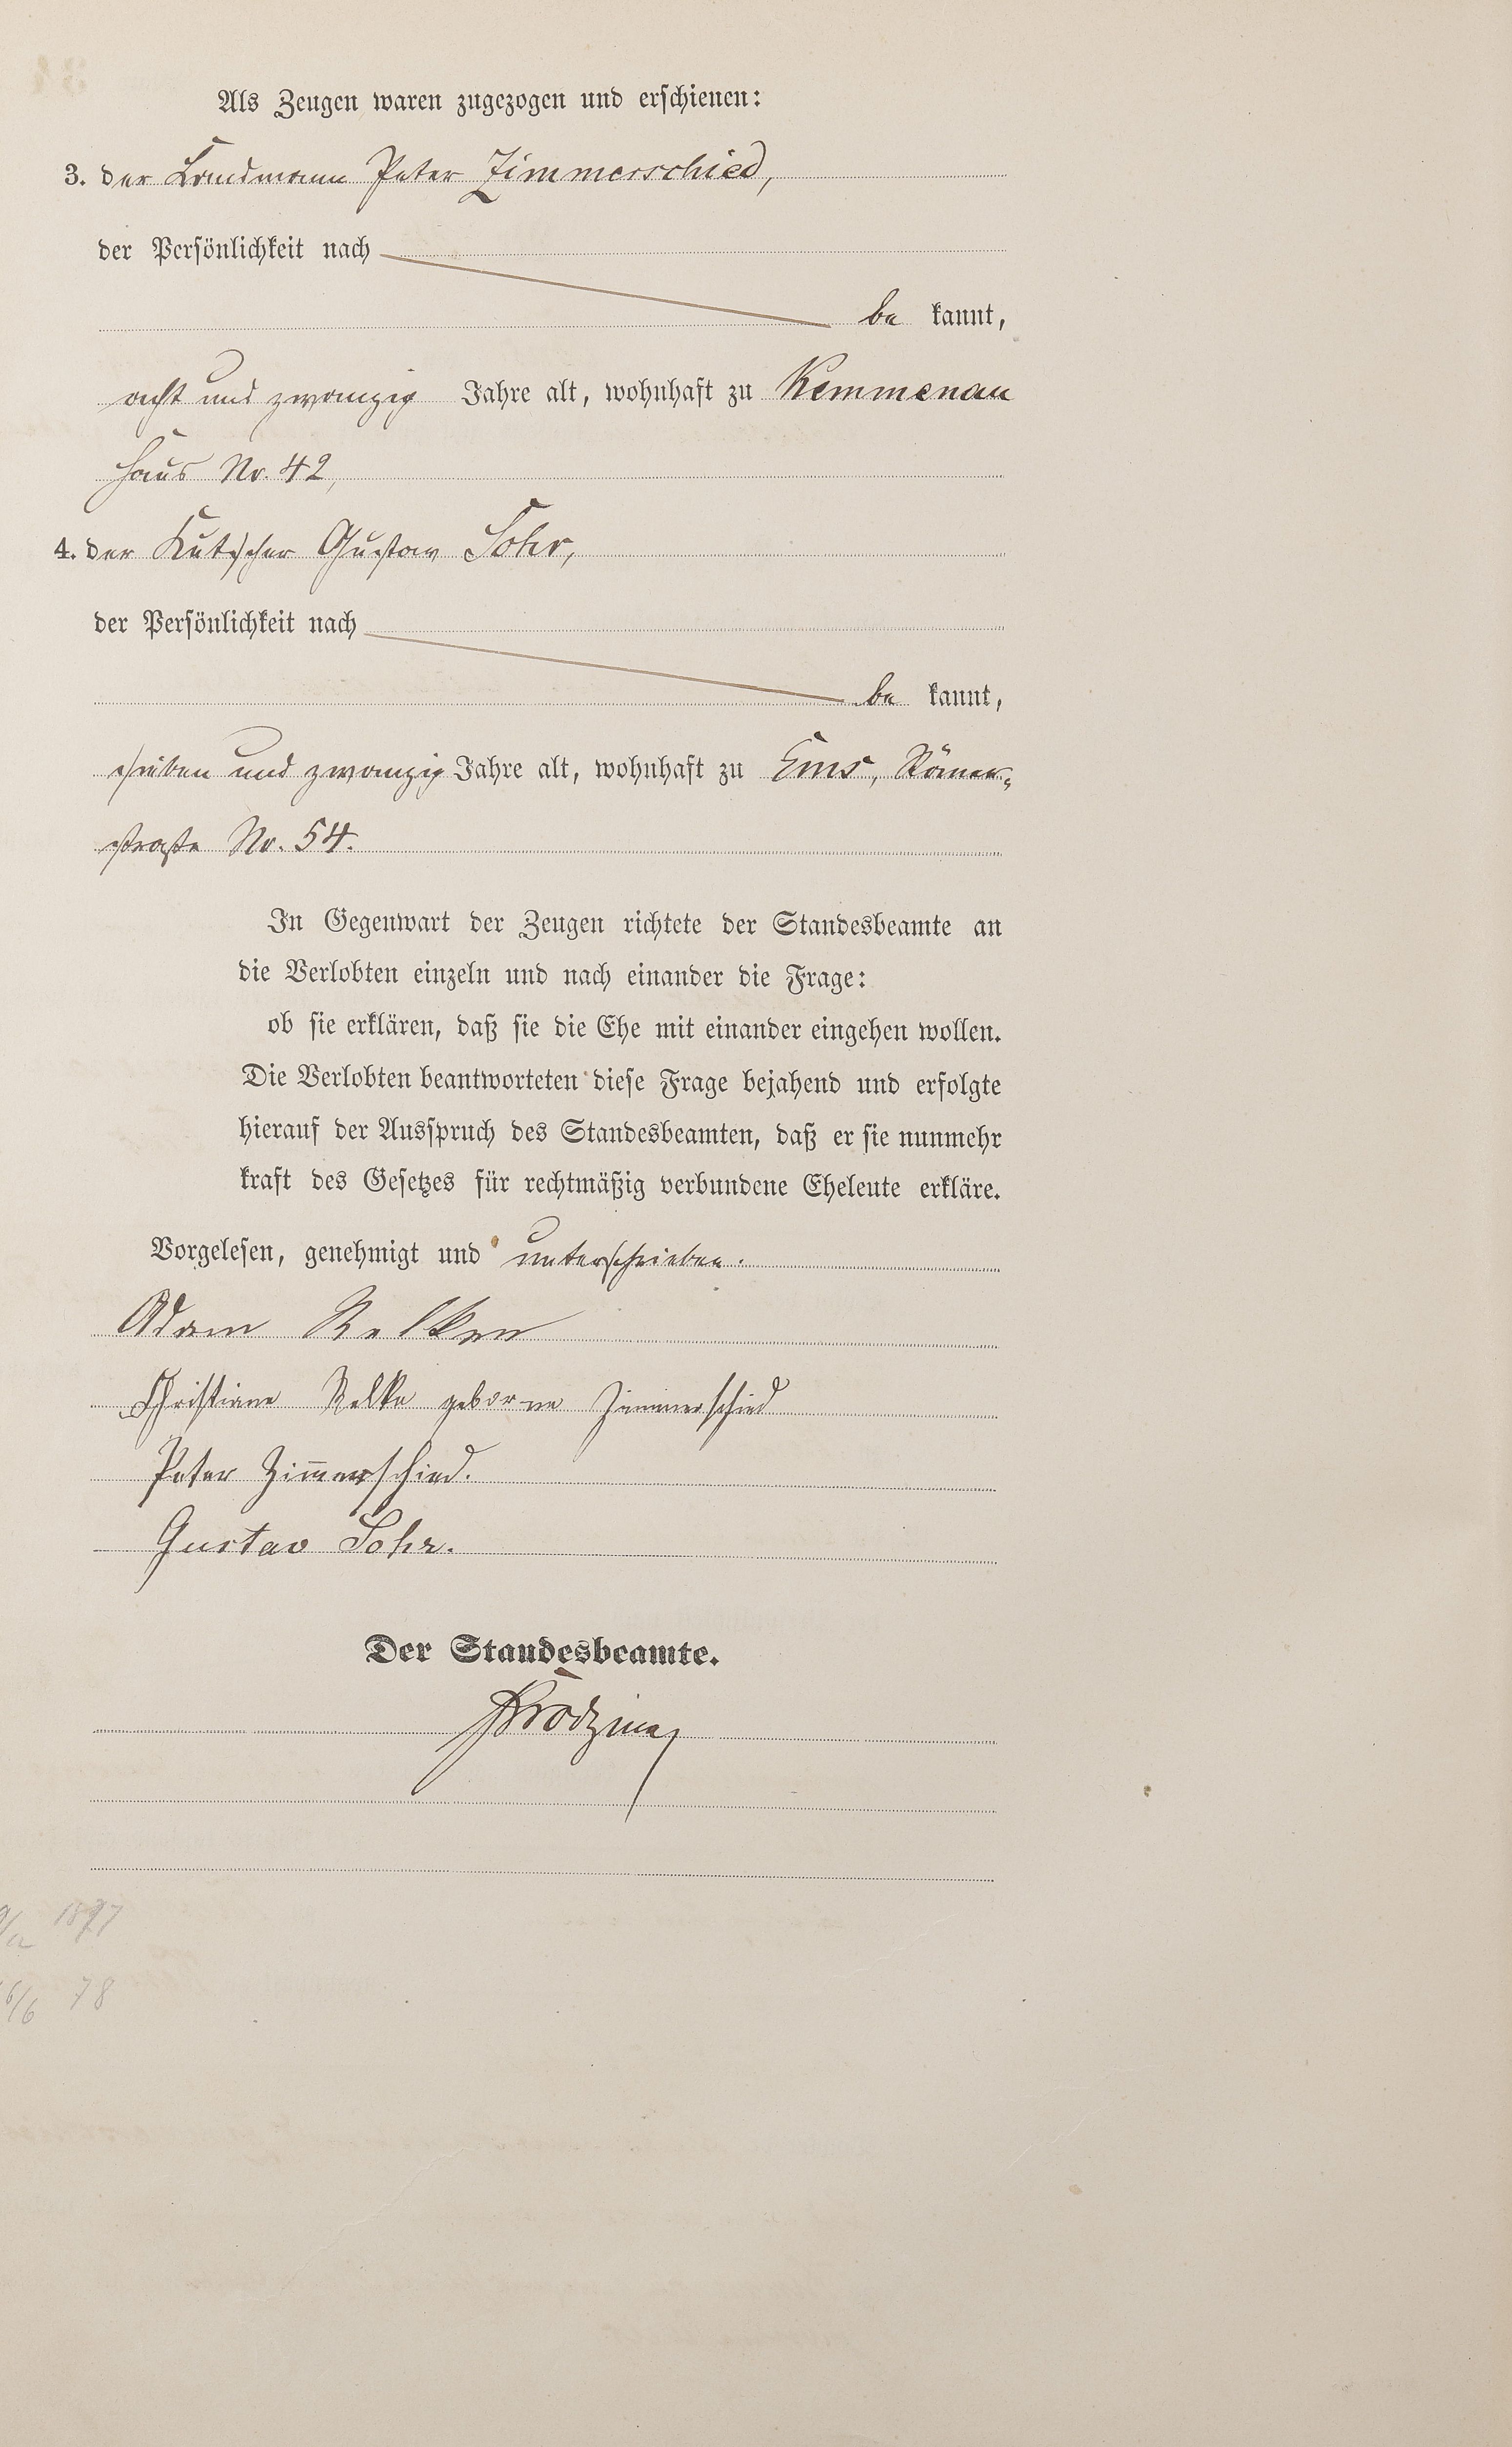 Als Zeugen waren zugezogen und erschienen:
3. der Landmann Peter Zimmerschied,
der Persönlichkeit nach
be kannt,
acht und zwanzig Jahre alt, wohnhaft zu Kemmenau
Haus Nr. 42,
4. der Kutscher Gustav Sohr,
der Persönlichkeit nach
be kannt,
sieben und zwanzig Jahre alt, wohnhaft zu Ems, Römer-
straße Nr. 54.
In Gegenwart der Zeugen richtete der Standesbeamte an
die Verlobten einzeln und nach einander die Frage:
ob sie erklären, daß sie die Ehe mit einander eingehen wollen.
Die Verlobten beantworteten diese Frage bejahend und erfolgte
hierauf der Ausspruch des Standesbeamten, daß er sie nunmehr
kraft des Gesetzes für rechtmäßig verbundene Eheleute erkläre.
Vorgelesen, genehmigt und unterschrieben.
Adam
Christiane geborne Zimmerschied
Peter Zimmerschied.
Gustav Sohr.
Der Standesbeamte.
78